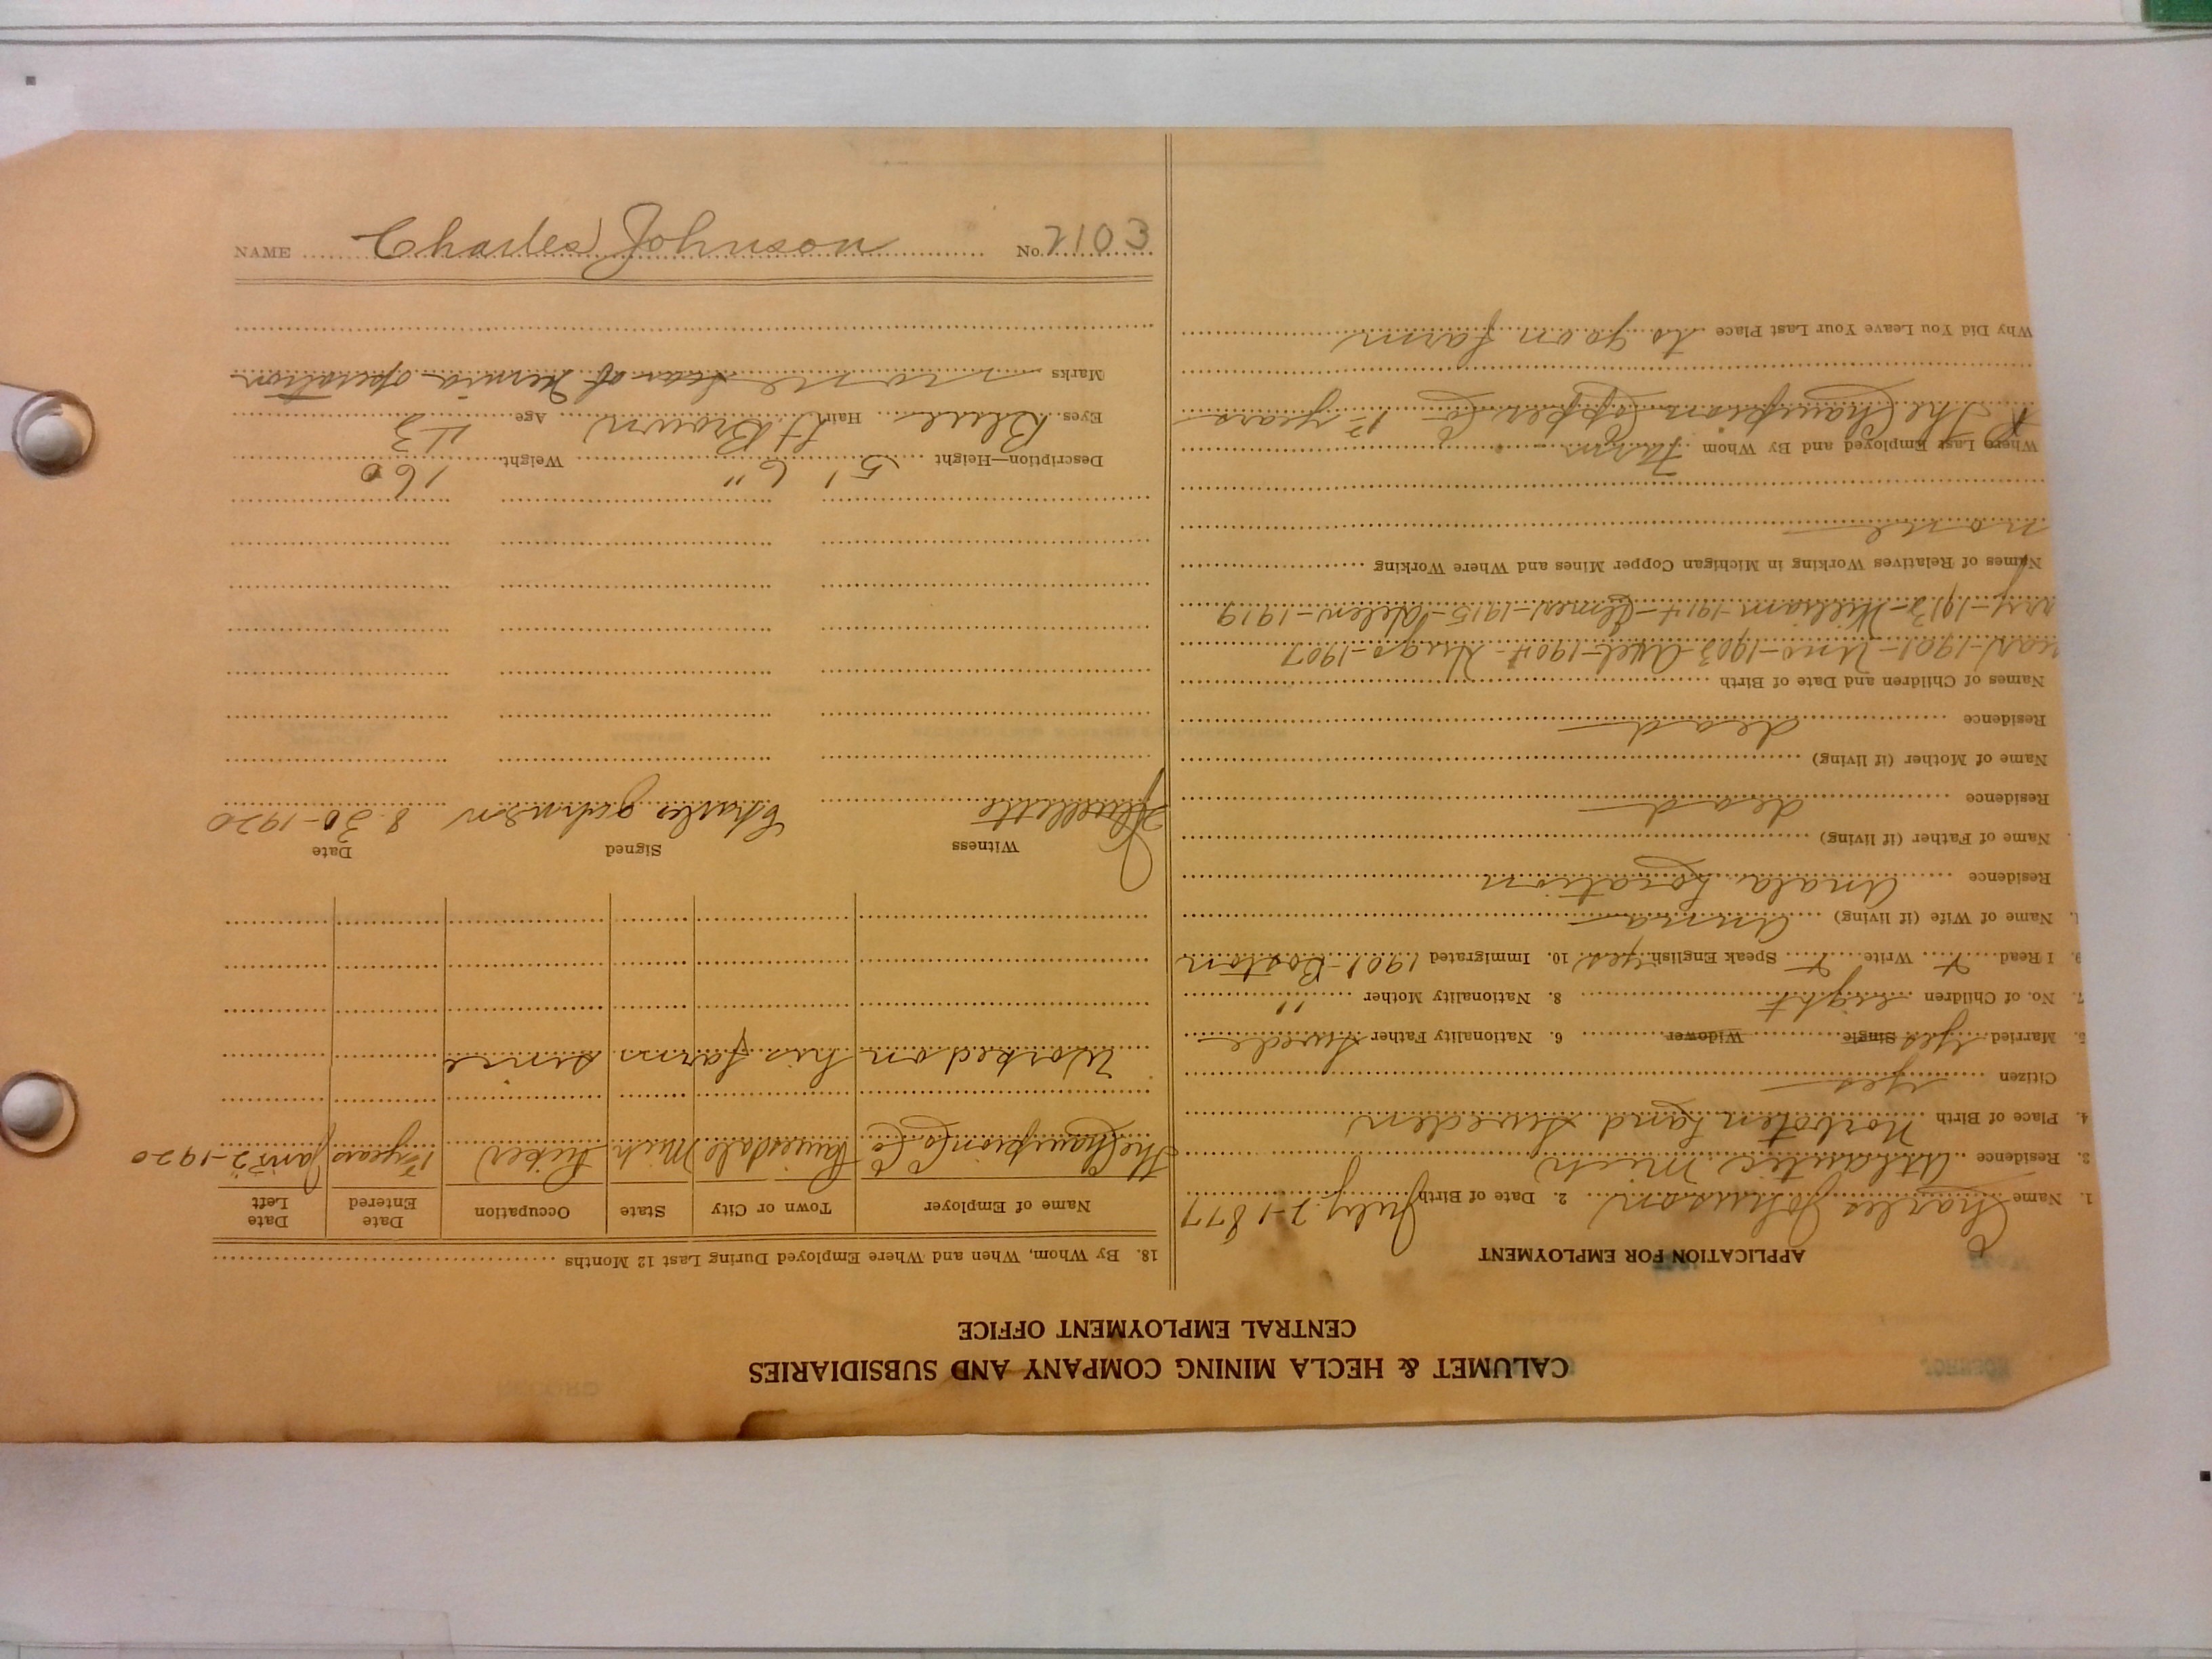 CALUMET & HECLA MINING COMPANY AND SUBSIDIARIES
CENTRAL EMPLOYMENT OFFICE
APPLICATION FOR EMPLOYMENT
1. Name Charles Johnson 2. Date of Birth July 2-1877
3. Residence Atlantic Mich
4. Place of Birth Norboten Land Sweden
Citizen yes
5. Married yes Single Widower 6. Nationality Father Swede
7. No. of Children eight 8. Nationality Mother "
9. I Read + Write + Speak English yes 10. Immigrated 1901-Boston
Name of Wife (if living) Anna
Residence Location
Name of Father (if living)
Residence dead
Name of Mother (if living)
Residence dead
Names of Children and Date of Birth
1901-Uno-1903-Axel-1904-Hugo-1907
1912-William-1914-Elmer-1915-Helen-1919
Names of Relatives Working in Michigan Copper Mines and Where Working
none
Where Last Employed and By Whom Farm
The Champion Copper Co years
Why Did You Leave Your Last Place to go on farm
18. By Whom, When and Where Employed During Last 12 Months
Name of Employer Town or City State Occupation Date Entered Date Left
The Champion Co Painesdale Mich years 2-1920
Worked on his farm since
Witness Signed Date
Charles Johnson 8-30-1920
Description—Height 5' 6" Weight 160
Eyes Blue Hair Lt Brown Age 43
Marks none Scar of Hernia operation
NAME Charles Johnson No. 2103